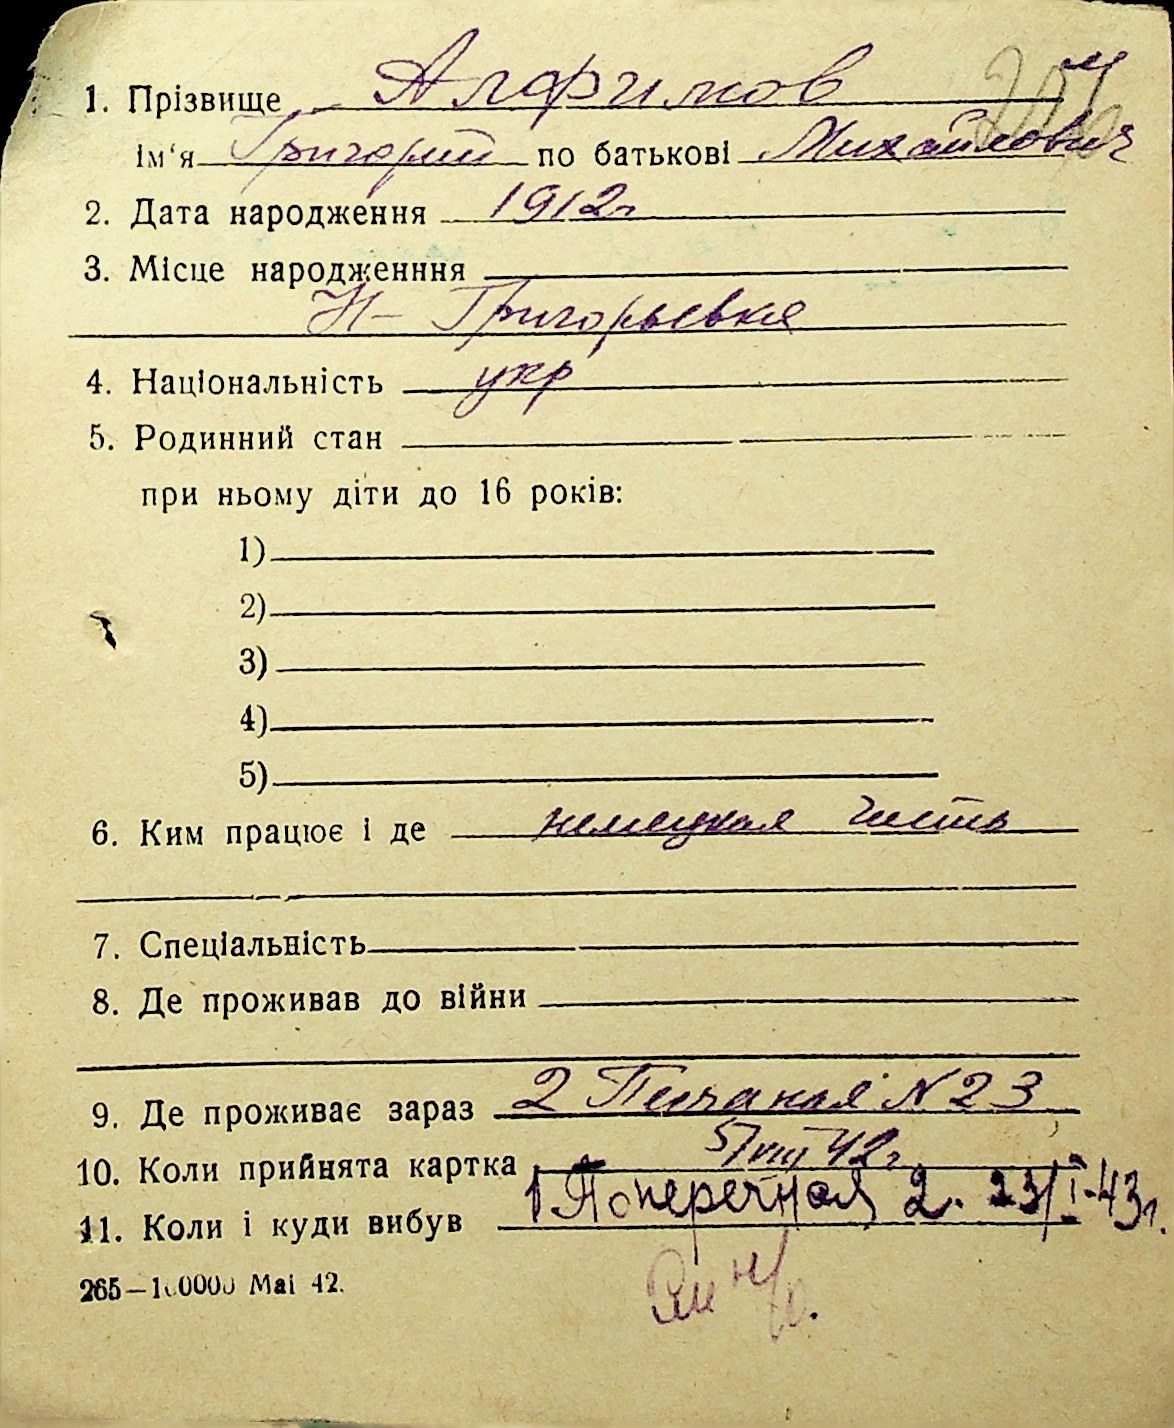 1. Прізвище Алфимов
ім‘я Григорий по батькові Михайлович
2. Дата народження 1912г
3. Місце народженння
Н- Григорьевка
4. Національність укр
5. Родинний стан
при ньому діти до 16 років:
1)
2)
3)
4)
5)
6. Ким працює і де немецкая часть
7. Спеціальність
8. Де проживав до війни
9. Де проживає зараз 2 Песчаная N 23
10. Коли прийнята картка 5/VIII 42г.
11. Коли і куди вибув 1 Поперечная 2. 23/I-43г.
265—100000 Mai 42.